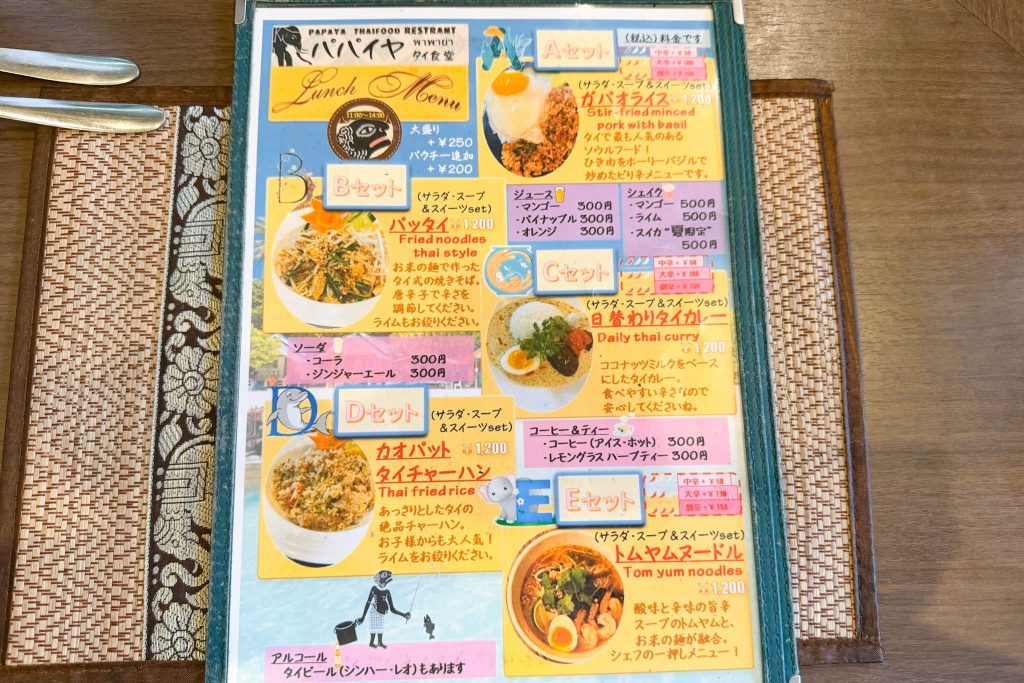 PAPAYA THAIFOOD RESTRANT
パパイヤ
พาพาย่า
タイ食堂
Lunch Menu
11:00~14:00
大盛り
+¥250
パクチー追加
+¥200
A
Aセット
(税込)料金です
中辛+¥50
大辛+¥100
(サラダ・スープ&スイーツset)
ガパオライス ¥1,200
Stir-fried minced
pork with basil
タイで最も人気のある
ソウルフード!
ひき肉をホーリーバジルで
炒めたピリ辛メニューです。
B
Bセット
(サラダ・スープ
&スイーツset)
パッタイ ¥1,200
Fried noodles
thai style
お米の麺で作った
タイ式の焼きそば。
唐辛子で辛さを
調節してください。
ライムもお絞りください。
ジュース
・マンゴー 300円
・パイナップル 300円
・オレンジ 300円
シェイク
・マンゴー 500円
・ライム 500円
・スイカ"夏限定"
500円
C
Cセット
中辛+¥50
大辛+¥100
劇辛+¥150
(サラダ・スープ&スイーツset)
日替わりタイカレー
Daily thai curry
¥1,200
ココナッツミルクをベース
にしたタイカレー。
食べやすい辛さなので
安心してくださいね。
ソーダ
・コーラ 300円
・ジンジャーエール 300円
D
Dセット
(サラダ・スープ
&スイーツset)
カオパット ¥1,200
タイチャーハン
Thai fried rice
あっさりとしたタイの
絶品チャーハン。
お子様からも大人気!
ライムをお絞りください。
コーヒー&ティー
・コーヒー(アイス・ホット) 300円
・レモングラス ハーブティー 300円
E
Eセット
中辛+¥50
大辛+¥100
劇辛+¥150
(サラダ・スープ&スイーツset)
トムヤムヌードル
Tom yum noodles
¥1,200
酸味と辛味の旨辛
スープのトムヤムと、
お米の麺が融合。
シェフの一押しメニュー!
アルコール
タイビール(シンハー・レオ)もあります